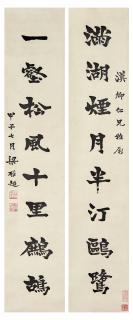 滿湖煙月半汀鷗鷺
漢卿仁兄雅屬
一壑松風十里鶴
甲子七月梁啟超